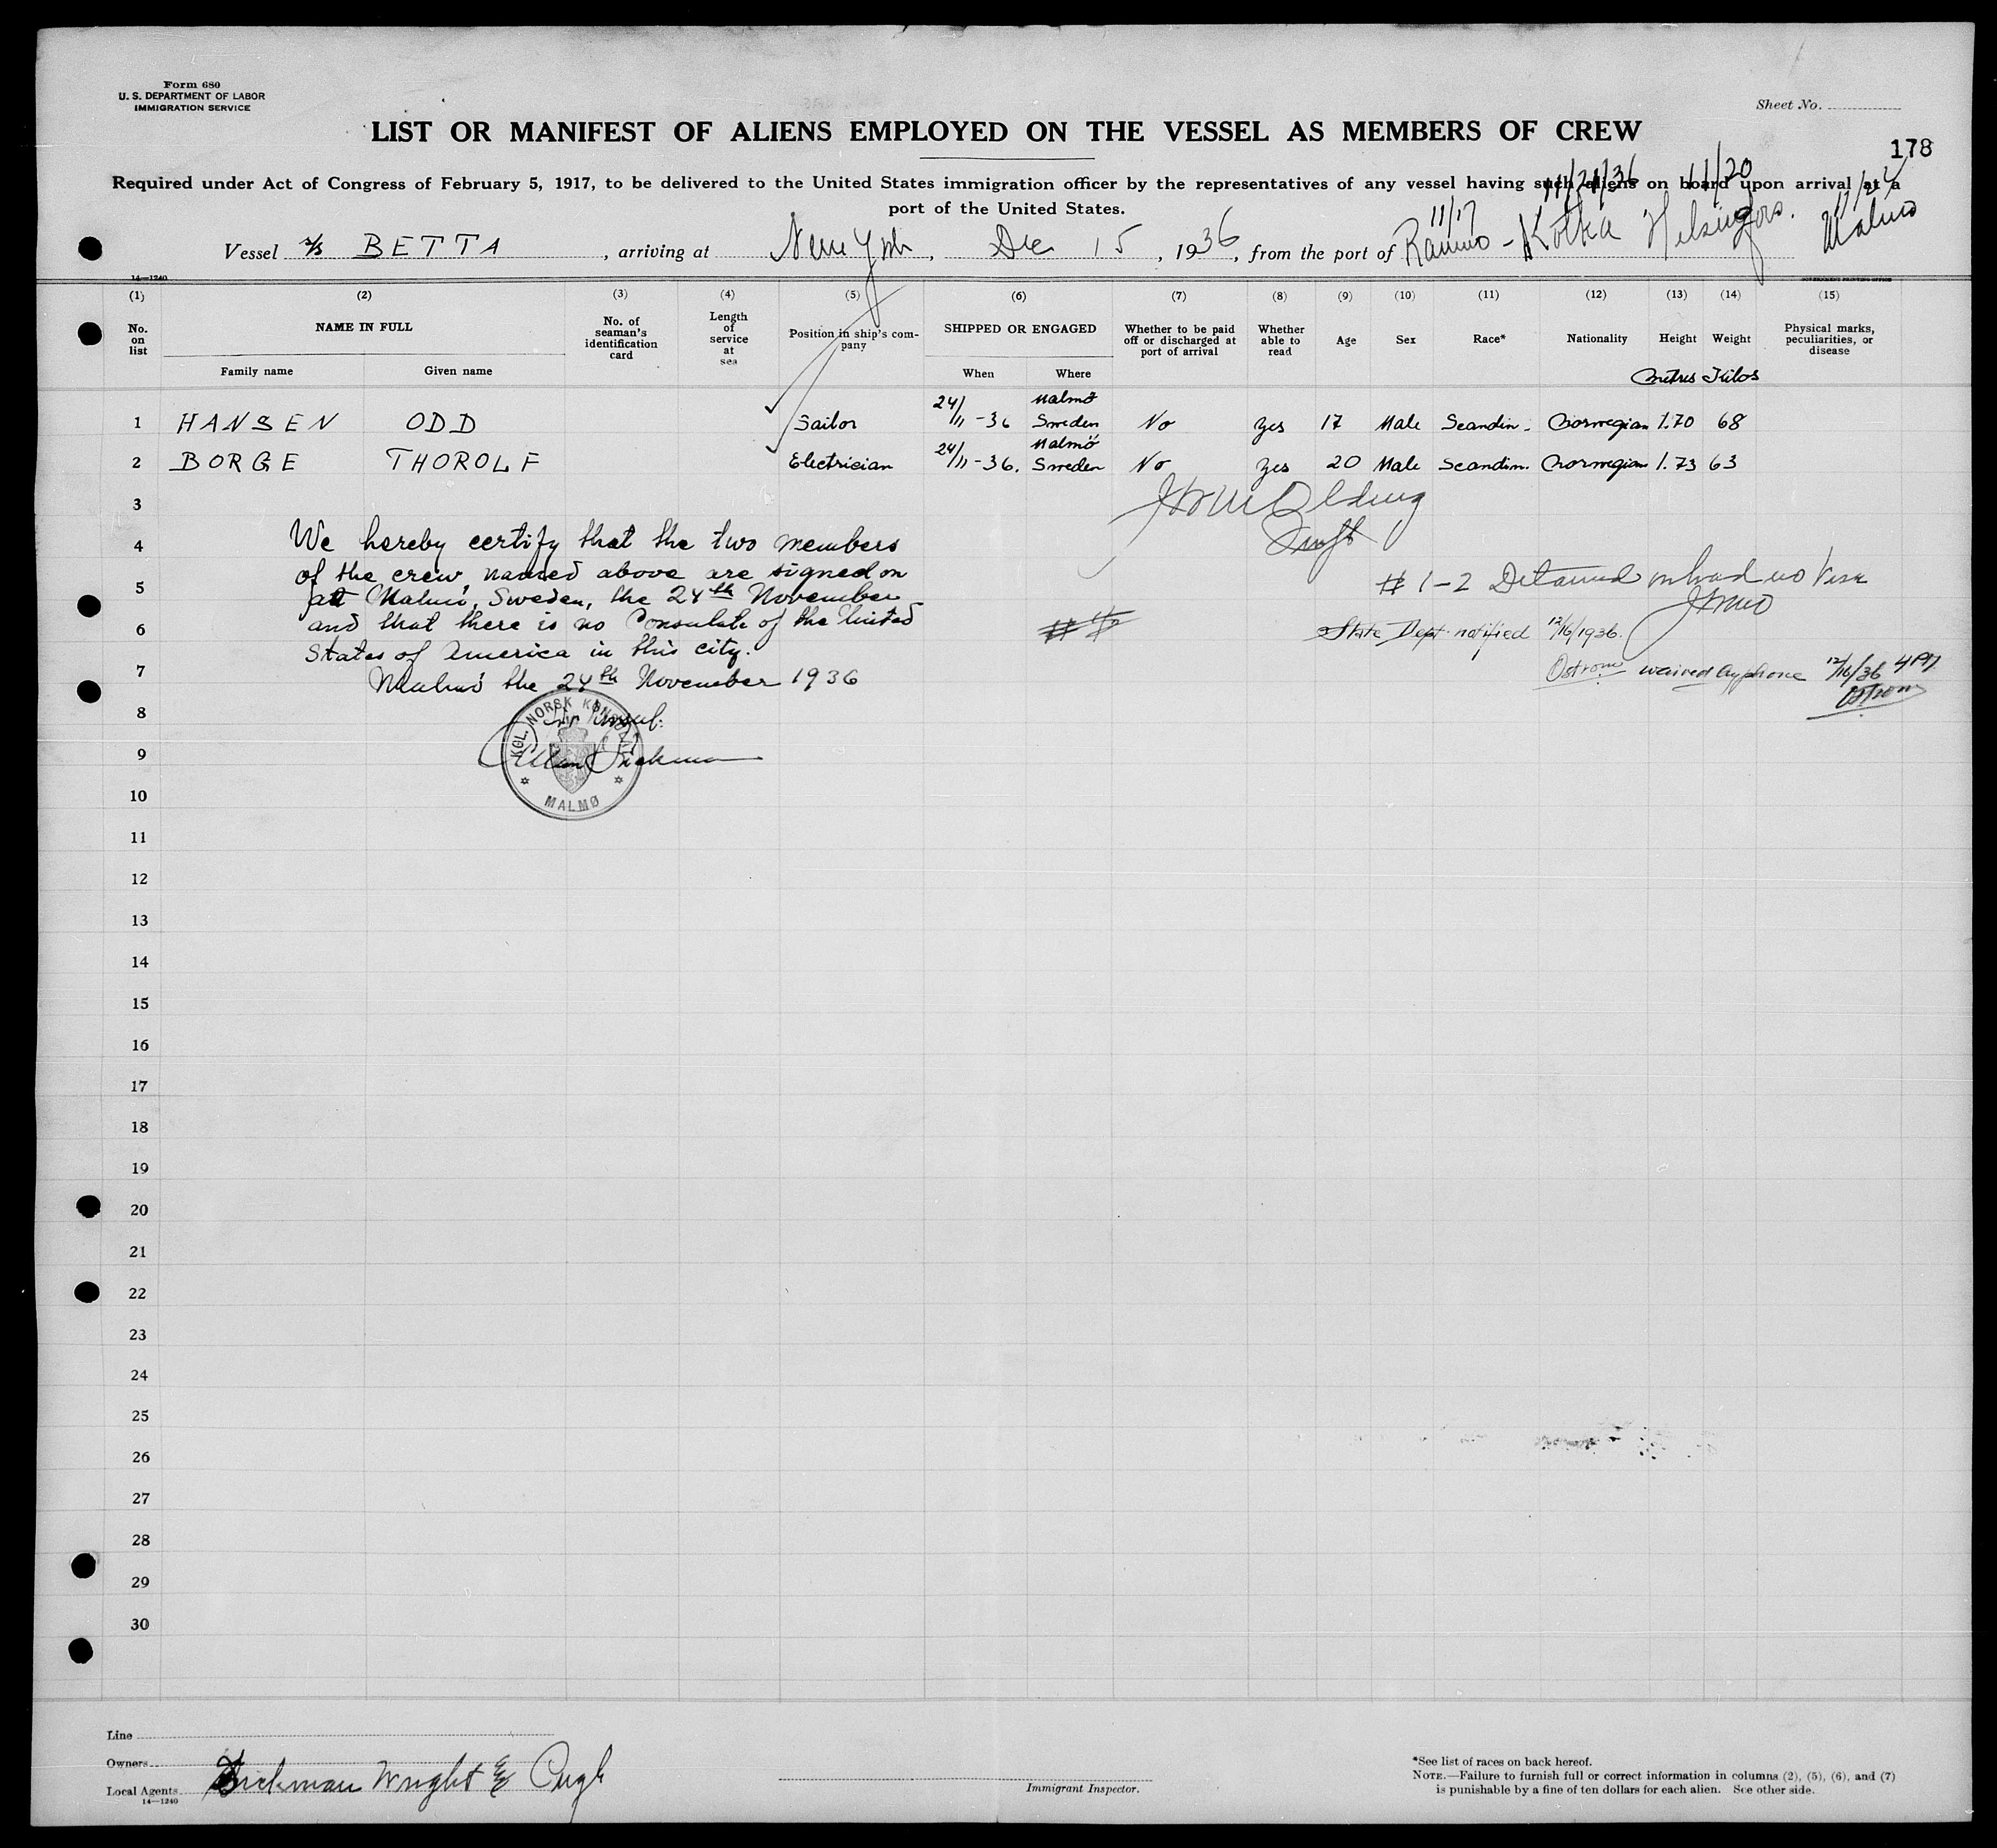 Form 680
U. S. DEPARTMENT OF LABOR
IMMIGRATION SERVICE
Sheet No.
LIST OR MANIFEST OF ALIENS EMPLOYED ON THE VESSEL AS MEMBERS OF CREW
178
Required under Act of Congress of February 5, 1917, to be delivered to the United States immigration officer by the representatives of any vessel having such aliens on board upon arrival at a
port of the United States.
11/17 11/21/36 11/20
Vessel BETTA, arriving at New York, Dec 15, 1936, from the port of Raumo - Kotka Helsingfors. Malmo
14—1240
(1) (2) (3) (4) (5) (6) (7) (8) (9) (10) (11) (12) (13) (14) (15)
No. on list NAME IN FULL Family name Given name No. of seaman's identification card Length of service at sea Position in ship's company SHIPPED OR ENGAGED When Where Whether to be paid off or discharged at port of arrival Whether able to read Age Sex Race* Nationality Height Weight Physical marks, peculiarities, or disease
Metres Kilos
1 HANSEN ODD Sailor 24/11-36 Malmö Sweden No Yes 17 Male Scandin. Norwegian 1.70 68
2 BORGE THOROLF Electrician 24/11-36. Malmö Sweden No Yes 20 Male Scandin. Norwegian 1.73 63
3
4
5
6
7
8
9
10
11
12
13
14
15
16
17
18
19
20
21
22
23
24
25
26
27
28
29
30
We hereby certify that the two members
of the crew, named above are signed on
at Malmö, Sweden, the 24th November
and that there is no Consulate of the United
States of America in this city.
Malmö the 24th November 1936
KGL. NORSK KONSULAT
MALMØ
# 1-2 Detained on board no Visa
State Dept. notified 12/16/1936.
Ostrom waived by phone 12/16/36 4 PM
Ostrom
Line
Owners
Local Agents Dickman Wright & Pugh
14—1240
Immigrant Inspector.
*See list of races on back hereof.
NOTE.—Failure to furnish full or correct information in columns (2), (5), (6), and (7)
is punishable by a fine of ten dollars for each alien. See other side.